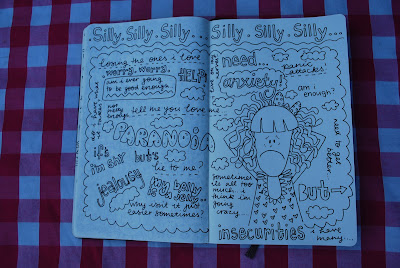 Silly. Silly. Silly...
losing the ones i love
worry, worry.
HELP!
am i ever going
to be good enough
not
being
enough
tell me you love me
PARANOIA
it's
i'm shy
but's
lie to me?
jealousy
my belly
is of jelly..
why isn't it just
easier sometimes?
Silly. Silly. Silly...
need...
panic
attacks!
anxiety!
am i
enough?
need to get
better
Sometimes
is all too
much, i
think i'm
going
crazy.
But
insecurities
i have
many...